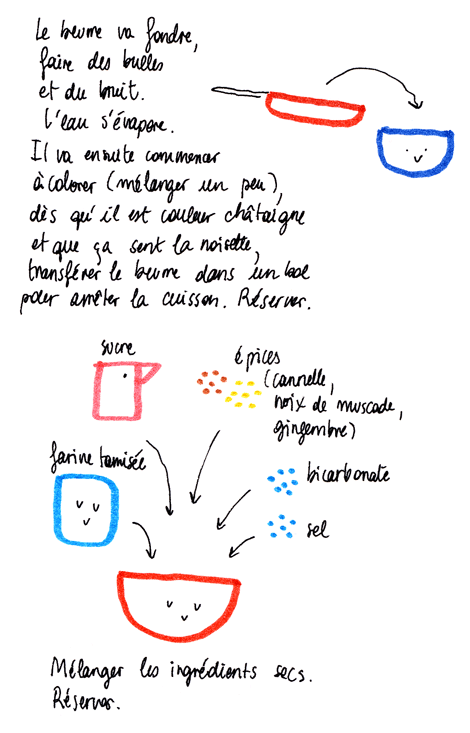 Le beurre va fondre,
faire des bulles
et du bruit.
L'eau s'évapore.
Il va ensuite commencer
à colorer (mélanger un peu),
dès qu'il est couleur châtaigne
et que ça sent la noisette,
transférer le beurre dans un bol
pour arrêter la cuisson. Réserver.
sucre
épices
(cannelle,
noix de muscade,
gingembre)
farine tamisée
bicarbonate
sel
Mélanger les ingrédients secs.
Réserver.